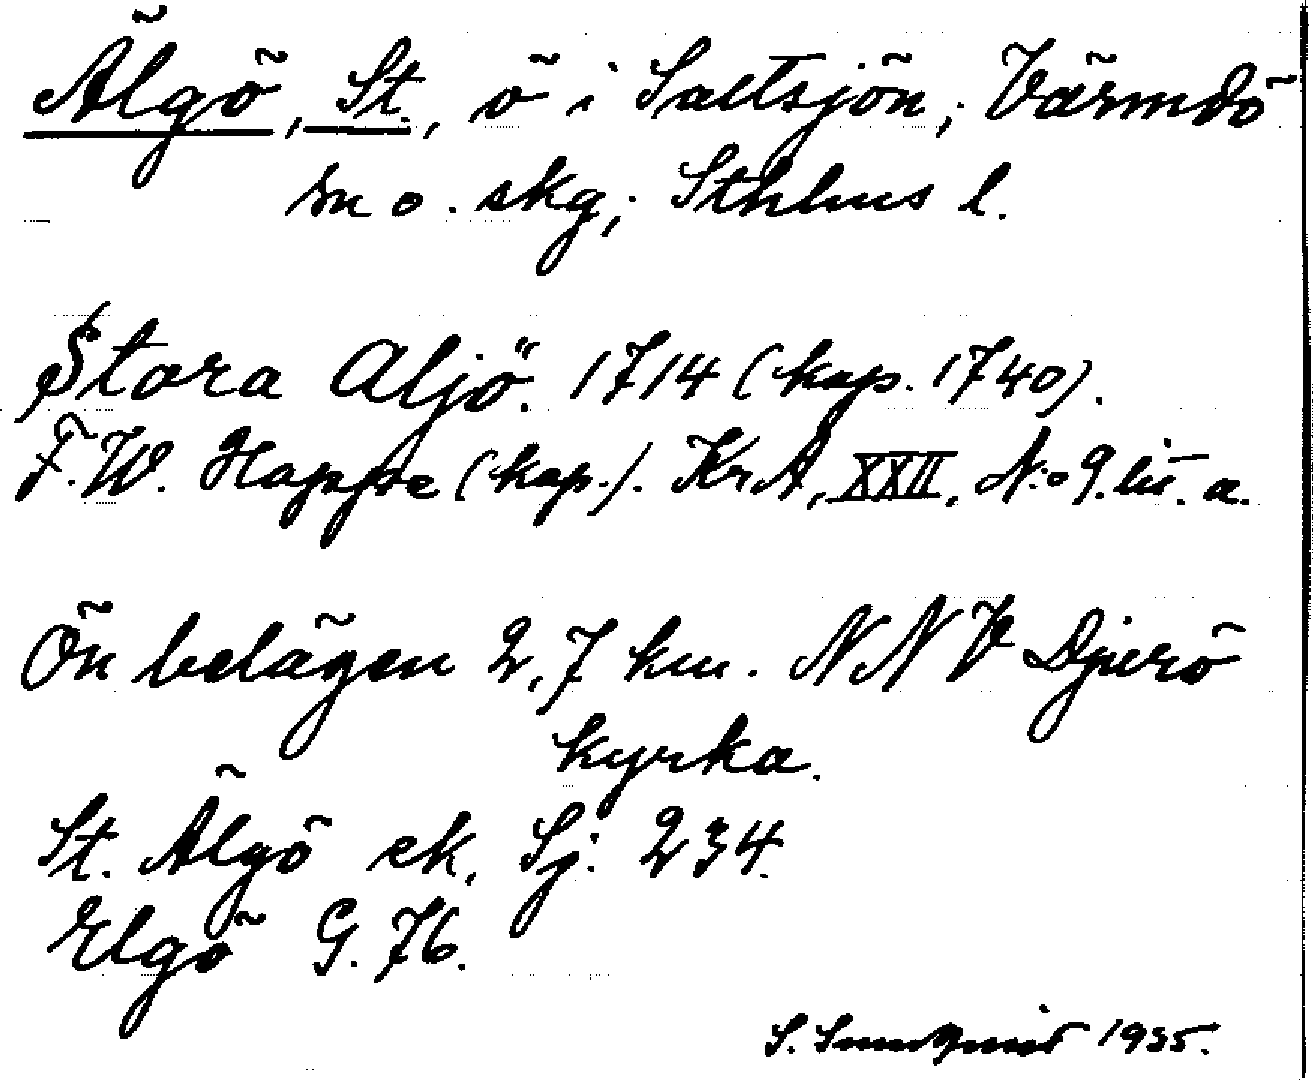 Älgö, St., ö i Saltsjön; Värmdö
sn o. skg; Sthlms l.
Stora Aljö. 1714 (kop. 1740).
F. W. Happe (kop.). KrA, XXII, N:o 9. lit. a.
Ön belägen 2,7 km. NNV Djurö
kyrka.
St. Älgö ek. Sj. 234.
Elgö G. 76.
S. Sundquist 1935.